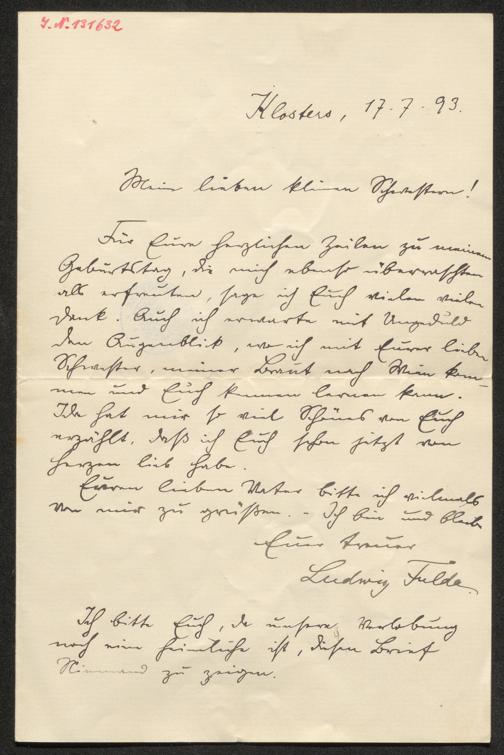 J. N. 131632
Klosters, 17. 7. 93.
Meine lieben kleinen Schwestern!
Für Eure herzlichen Zeilen zu meinem
Geburtstag, die mich ebenso überraschten
als erfreuten, sage ich Euch vielen vielen
Dank. Auch ich erwarte mit Ungeduld
den Augenblick, wo ich mit Eurer lieben
Schwester, meiner Braut nach Wien kom-
men und Euch kennen lernen kann.
Ida hat mir so viel Schönes von Euch
erzählt, daß ich Euch schon jetzt von
Herzen lieb habe.
Euren lieben Vater bitte ich vielmals
von mir zu grüßen. – Ich bin und bleibe
Euer treuer
Ludwig Fulda.
Ich bitte Euch, da unsere Verlobung
noch eine heimliche ist, diesen Brief
Niemand zu zeigen.